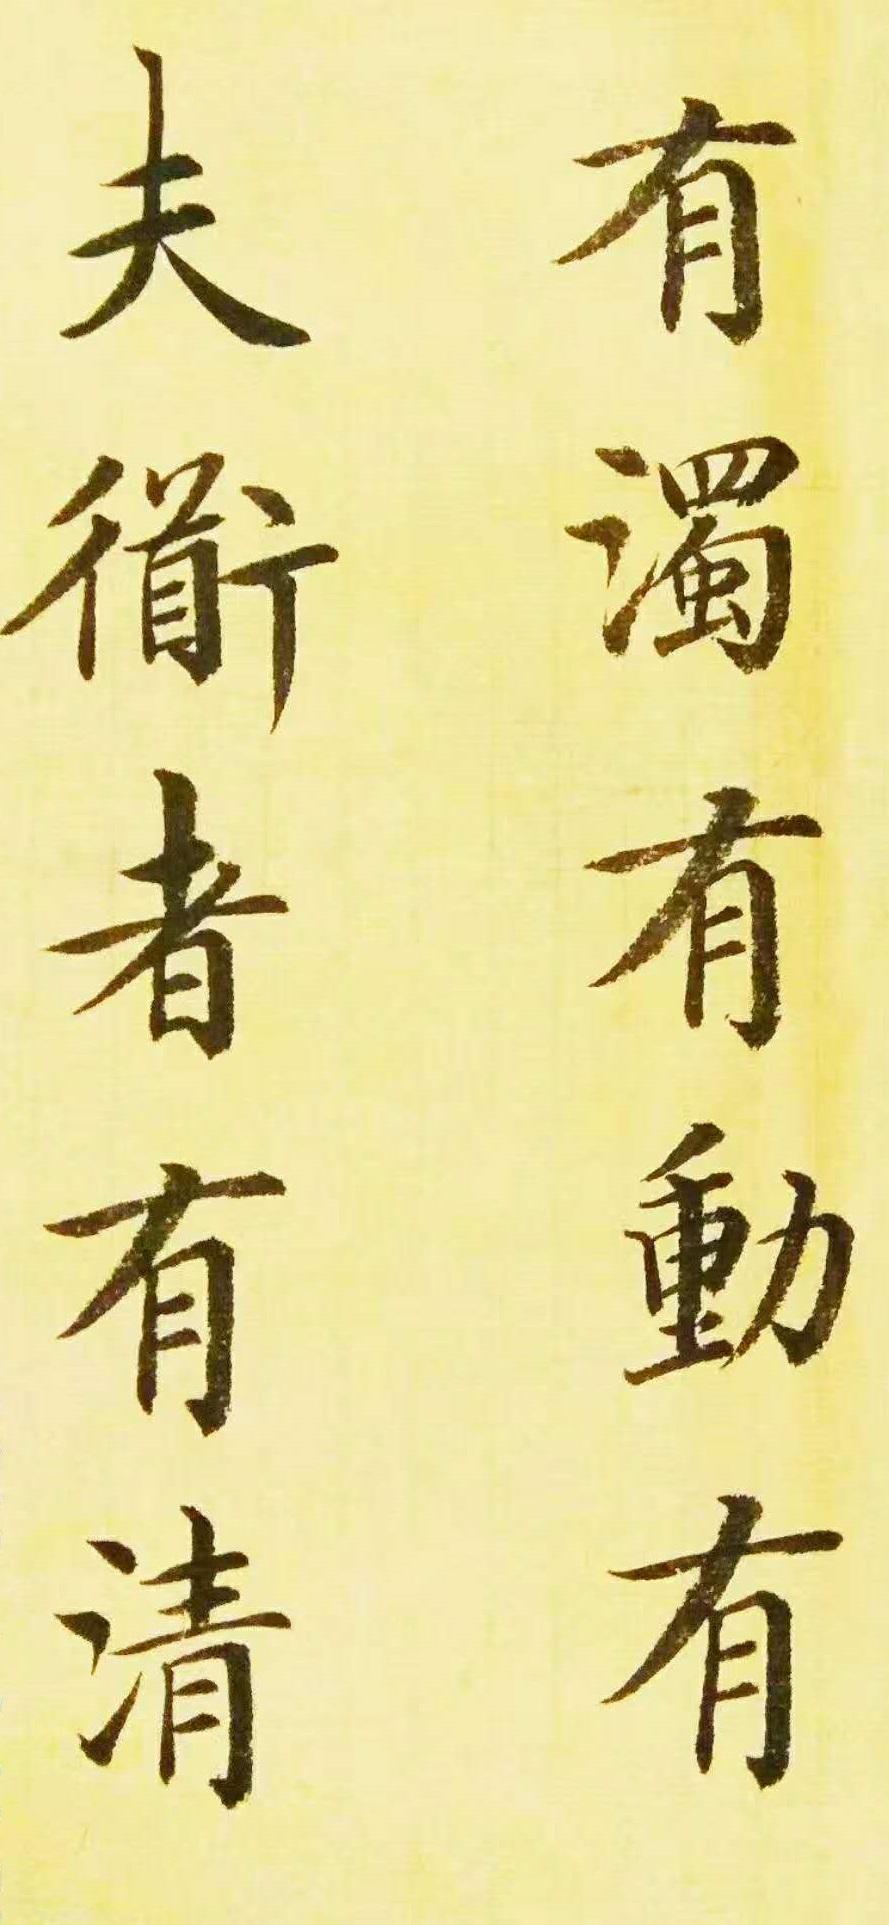 夫衜者有清
有濁有動有